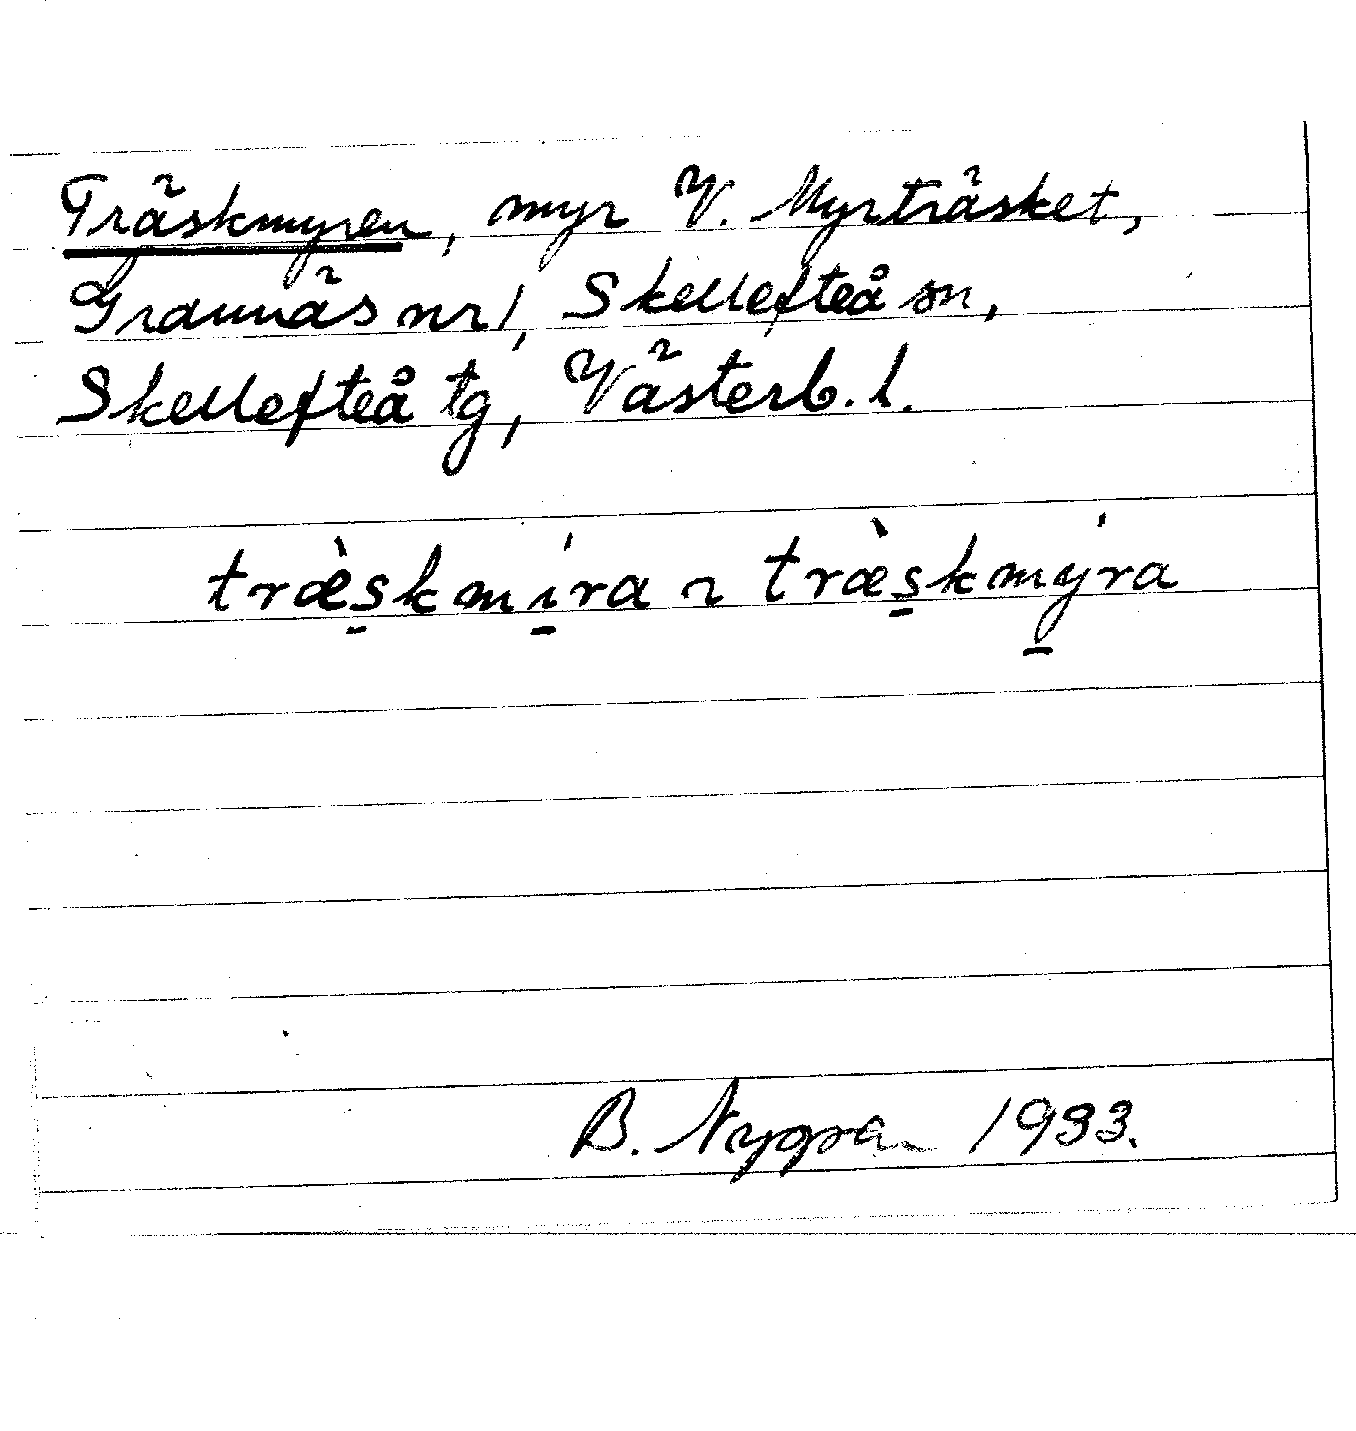 Träskmyren, myr V. Myrträsket,
Grannäs nr 1, Skellefteå sn,
Skellefteå tg, Västerb. l.
træ̀s̱kmí̱ra ~ træ̀s̱kmý̱ra
B. Nygren 1933.